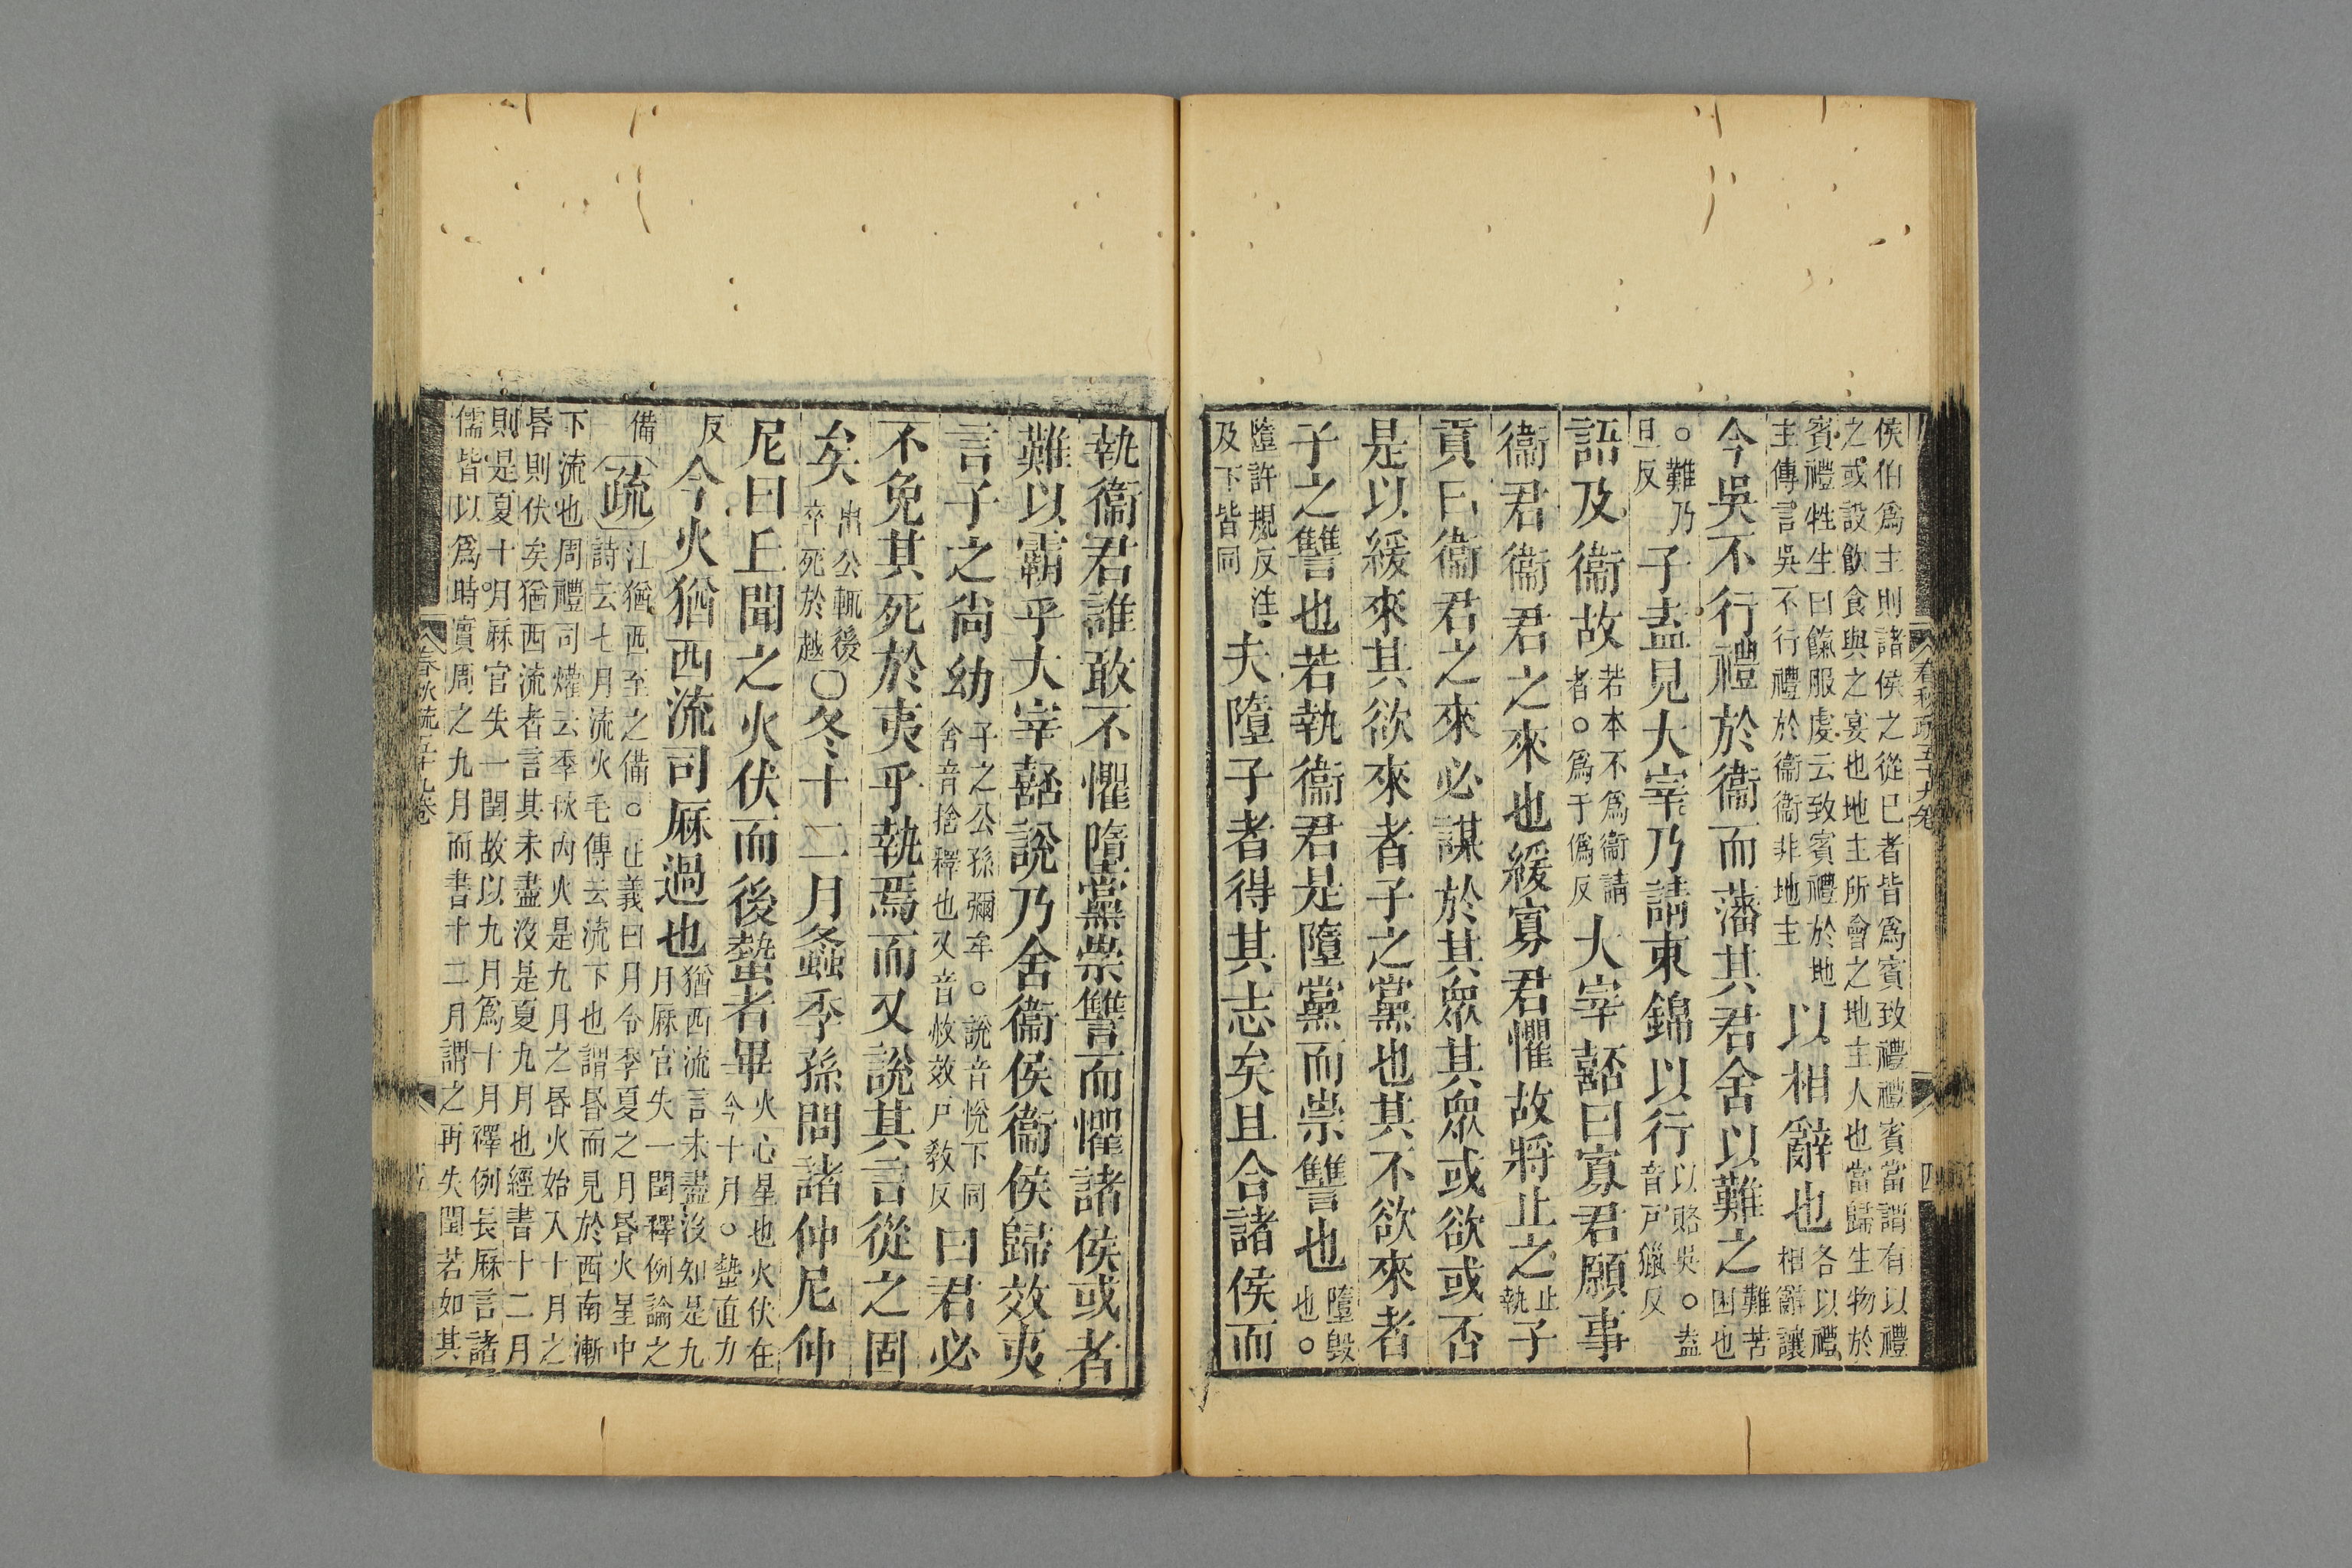 侯伯爲主則諸侯之從已者皆爲賓致禮禮賓當謂有以禮
之或設飲食與之宴也地主所會之地主人也當歸生物於
賓禮牲生曰餼服虔云致賓禮於地
主傳言吳不行禮於衞衞非地主
以相辭也
各以禮
相辭讓
今吳不行禮於衞而藩其君舍以難之
難苦
困也
○難乃
旦反
子盍見大宰乃請束錦以行
以賂吳○盍
音戸獵反
語及衞故
若本不爲衞請
者○爲于僞反
大宰嚭曰寡君願事
衞君衞君之來也緩寡君懼故將止之
止
執
子
貢曰衞君之來必謀於其衆其衆或欲或否
是以緩來其欲來者子之黨也其不欲來者
子之讐也若執衞君是墮黨而崇讐也
墮毀
也○
墮許規反注
及下皆同
夫墮子者得其志矣且合諸侯而
春秋疏五十九卷
四
執衞君誰敢不懼墮黨崇讐而懼諸侯或者
難以霸乎大宰嚭說乃舍衞侯衞侯歸效夷
言子之尙幼
子之公孫彌牟○說音悅下同
舍音捨釋也又音赦效戸教反
曰君必
不免其死於夷乎執焉而又說其言從之固
矣
出公輒後
卒死於越
○冬十二月螽季孫問諸仲尼仲
尼曰丘聞之火伏而後蟄者畢
火心星也火伏在
今十月○蟄直力
反
今火猶西流司厤過也
猶西流言未盡沒知是九
月厤官失一閏釋例論之
備
疏
注猶西至之備○正義曰月令季夏之月昬火星中
詩云七月流火毛傳云流下也謂昬而見於西南漸
下流也周禮司爟云季秋內火是九月之昬火始入十月之
昬則伏矣猶西流者言其未盡沒是夏九月也經書十二月
則是夏十月厤官失一閏故以九月爲十月釋例長厤言諸
儒皆以爲時實周之九月而書十二月謂之再失閏若如其
春秋疏五十九卷